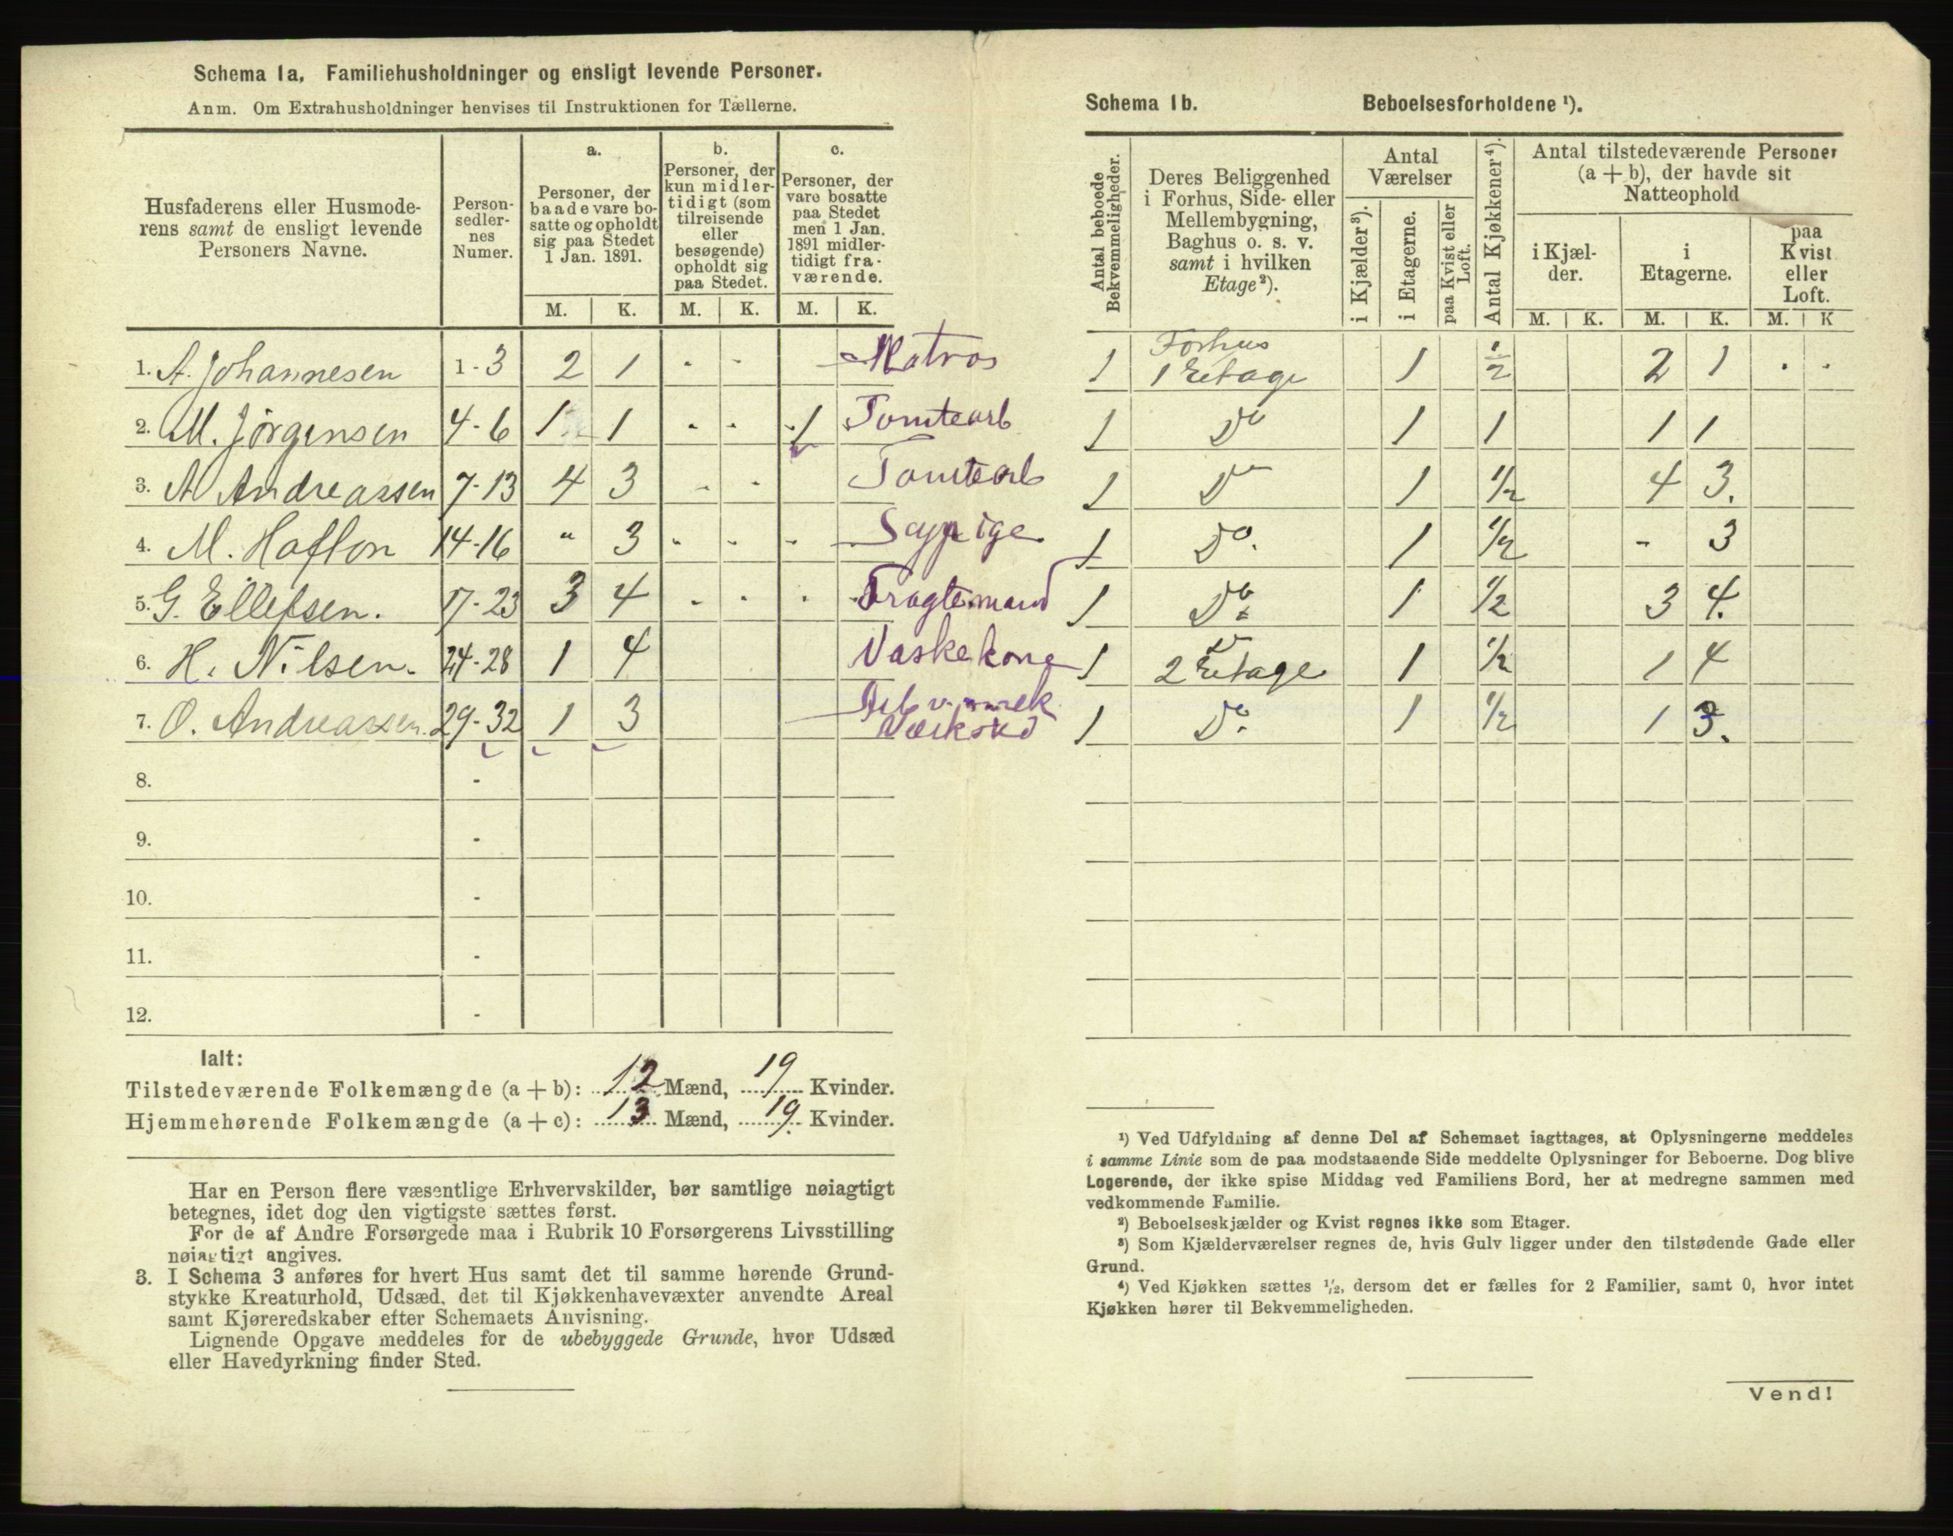 Schema 1a. Familiehusholdninger og ensligt levende Personer.
Anm. Om Extrahusholdninger henvises til Instruktionen for Tællerne.
Husfaderens eller Husmoderens samt de ensligt levende Personers Navne.
Person-sedlernes Numer.
a.
Personer, der baade vare bosatte og opholdt sig paa Stedet 1 Jan. 1891.
b.
Personer, der kun midlertidigt (som tilreisende eller besøgende) opholdt sig paa Stedet.
c.
Personer, der vare bosatte paa Stedet men 1 Jan. 1891 midlertidigt fraværende.
M. K. M. K. M. K.
1. A. Johannesen 1-3 2 1 - - Matros
2. M. Jørgensen 4-6 1 1 - - 1 Tomtearb
3. A. Andreassen 7-13 4 3 - - Tomtearb
4. M. Haflon 14-16 " 3 - - - Sypige
5. G. Ellefsen. 17-23 3 4 - - - Fragtemand
6. H. Nilsen. 24-28 1 4 Vaskekone
7. O. Andreassen. 29-32 1 3 Arb v. mek Værksted
8. -
9. -
10. -
11. -
12. -
Ialt:
Tilstedeværende Folkemængde (a + b): 12 Mænd, 19 Kvinder.
Hjemmehørende Folkemængde (a + c): 13 Mænd, 19 Kvinder.
Har en Person flere væsentlige Erhvervskilder, bør samtlige nøiagtigt
betegnes, idet dog den vigtigste sættes først.
For de af Andre Forsørgede maa i Rubrik 10 Forsørgerens Livsstilling
nøiagtigt angives.
3. I Schema 3 anføres for hvert Hus samt det til samme hørende Grund-
stykke Kreaturhold, Udsæd, det til Kjøkkenhavevæxter anvendte Areal
samt Kjøreredskaber efter Schemaets Anvisning.
Lignende Opgave meddeles for de ubebyggede Grunde, hvor Udsæd
eller Havedyrkning finder Sted.
Schema 1b. Beboelsesforholdene ¹).
Antal beboede Bekvemmeligheder.
Deres Beliggenhed i Forhus, Side- eller Mellembygning, Baghus o. s. v. samt i hvilken Etage ²).
Antal Værelser
i Kjælder ³).
i Etagerne.
paa Kvist eller Loft.
Antal Kjøkkener ⁴).
Antal tilstedeværende Personer (a + b), der havde sit Natteophold
i Kjælder.
i Etagerne.
paa Kvist eller Loft.
M. K. M. K. M. K
1 Forhus 1 Etage 1 ½ 2 1 - -
1 Do 1 1 1 1
1 Do 1 ½ 4 3.
1 Do. 1 ½ - 3
1 Do. 1 ½ 3 4.
1 Do 2 Etage 1 ½ 1 4
1 Do. 1 ½ 1 3.
¹) Ved Udfyldning af denne Del af Schemaet iagttages, at Oplysningerne meddeles
i samme Linie som de paa modstaaende Side meddelte Oplysninger for Beboerne. Dog blive
Logerende, der ikke spise Middag ved Familiens Bord, her at medregne sammen med
vedkommende Familie.
²) Beboelseskjælder og Kvist regnes ikke som Etager.
³) Som Kjælderværelser regnes de, hvis Gulv ligger under den tilstødende Gade eller
Grund.
⁴) Ved Kjøkken sættes ½, dersom det er fælles for 2 Familier, samt 0, hvor intet
Kjøkken hører til Bekvemmeligheden.
Vend!